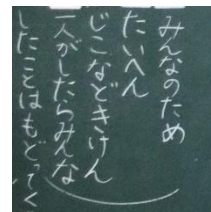 みんなのため
たいへん
じこなどきけん
一人がしたらみんな
したことはもどってく